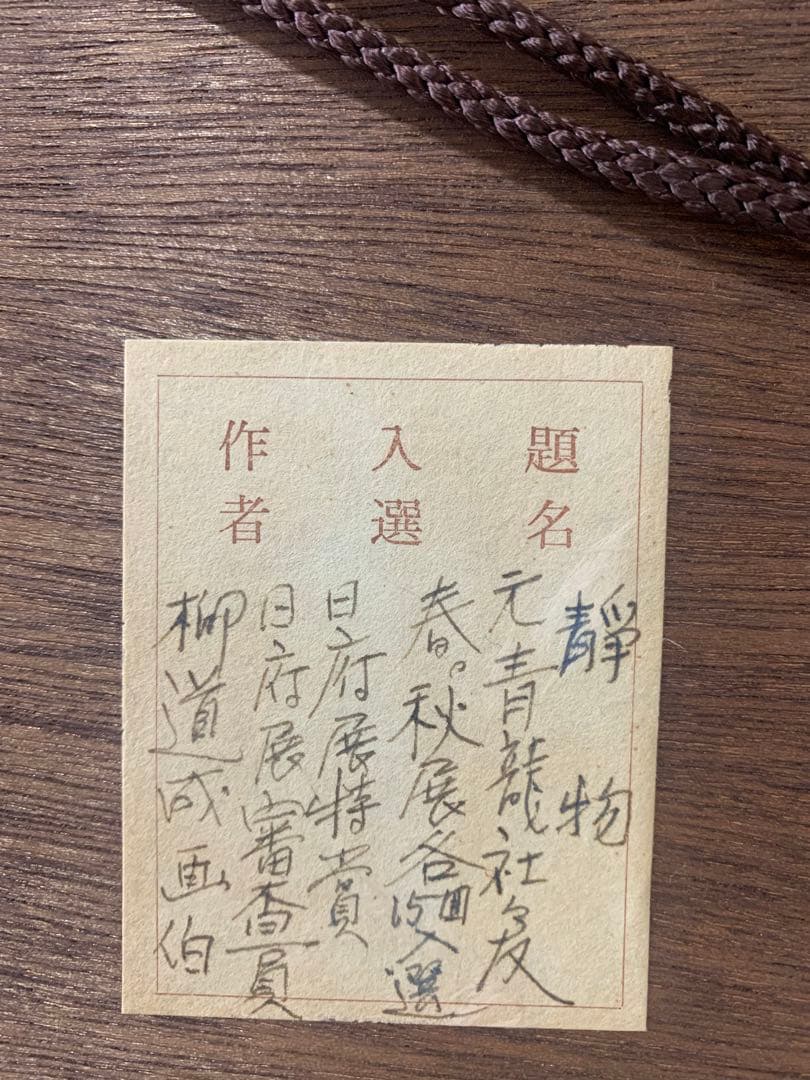 題名
入選
作者
靜物
元青龍社々友
春。秋展各15回入選
日府展特賞
日府展審査員
柳道成画伯